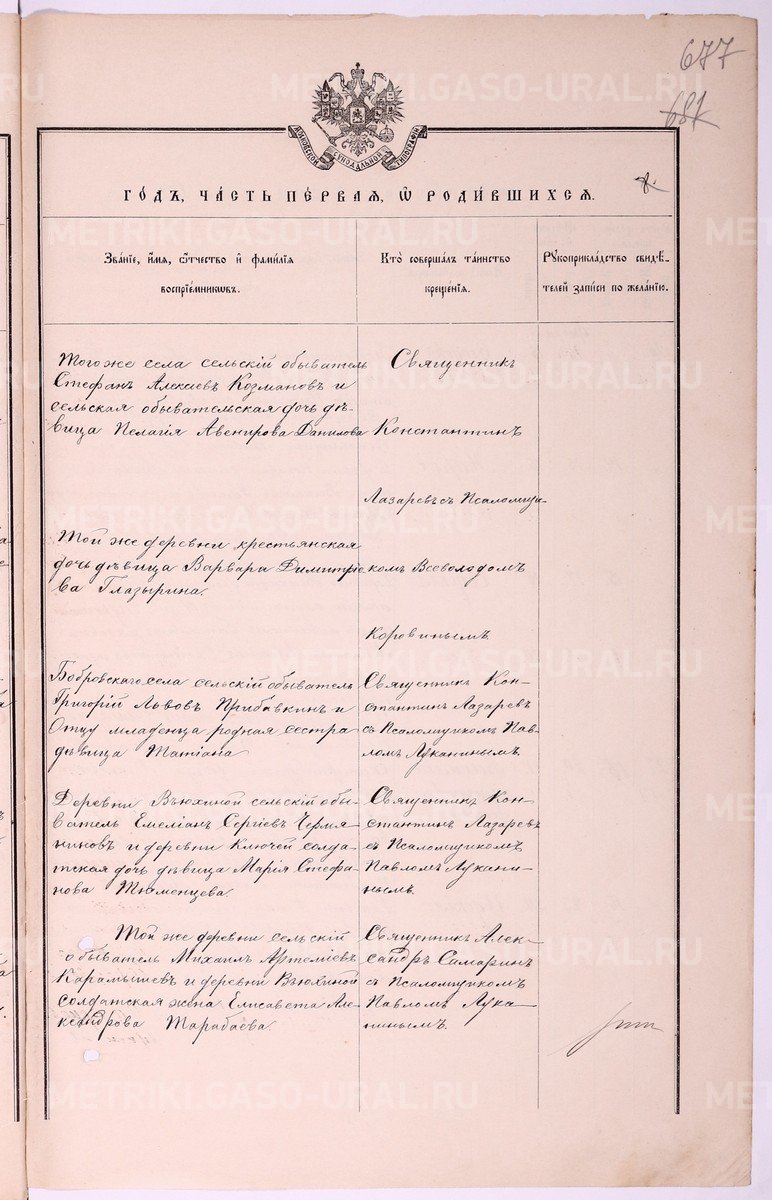 677
681
МОСКОВСКОЙ СѴНОДАЛЬНОЙ ТИПОГРАФІИ
ГО́ДЪ, ЧА́СТЬ ПЕ́РВАЯ, Ѡ҆ РОДИ́ВШИХСѦ.
Зва́нїе, и҆́мѧ, ѻ҆́тчество и҆ фами́лїѧ
воспрїе́мникѡвъ.
Кто̀ соверша́лъ та́инство
креще́нїѧ.
Рꙋкоприкла́дство свидѣ́-
телей за́писи по жела́нїю.
Того же села сельскій обыватель
Стефанъ Алексѣевъ Козмановъ и
сельская обывательская дочь дѣ-
вица Пелагія Авенирова Данилова
Священникъ
Константинъ
Лазаревъ съ Псаломщи-
комъ Всеволодомъ
Коровинымъ.
Той же деревни крестьянская
дочь дѣвица Варвара Димитріе
ва Глазырина.
Бобровскаго села сельскій обыватель
Григорій Львовъ Прибавкинъ и
Отцу младенца родная сестра
дѣвица Татіана
Священникъ Кон-
стантинъ Лазаревъ
съ Псаломщикомъ Пав-
ломъ Луканинымъ.
Деревни Вьюхиной сельскій обы-
ватель Емеліанъ Сергіевъ Чермя-
ниновъ и деревни Ключей солда-
тская дочь дѣвица Марія Стефа-
нова Тюменцева.
Священникъ Кон-
стантинъ Лазаревъ
съ Псаломщикомъ
Павломъ Лукани-
нымъ.
Той же деревни сельскій
обыватель Михаилъ Артеміевъ
Карамышевъ и деревни Вьюхиной
солдатская жена Елисавета Але-
ксандрова Тарабаева.
Священникъ Алек-
сандръ Самаринъ
съ Псаломщикомъ
Павломъ Лука-
нинымъ.
METRIKI.GASO-URAL.RU